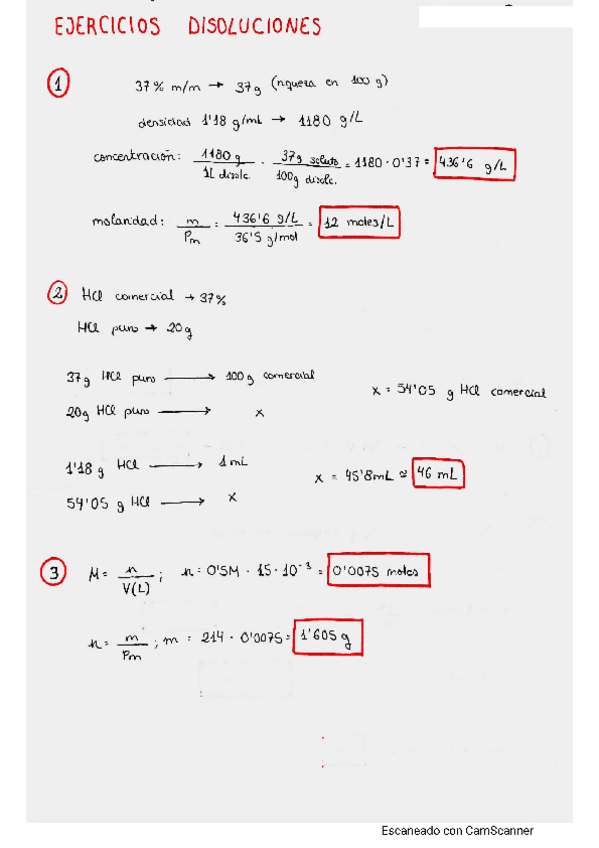 EJERCICIOS DISOLUCIONES
1
37 % m/m → 37g (riqueza en 100 g)
densidad 1'18 g/mL → 1180 g/L
concentración: 1180 g / 1L disolc. · 37g soluto / 100g disolc. = 1180 · 0'37 = 436'6 g/L
molaridad: m / Pm = 436'6 g/L / 36'5 g/mol = 12 moles/L
2 HCl comercial → 37%
HCl puro → 20g
37g HCl puro → 100g comercial
20g HCl puro → x
x = 54'05 g HCl comercial
1'18 g HCl → 1 mL
54'05 g HCl → x
x = 45'8mL ≈ 46 mL
3 M = n / V(L) ; n = 0'5M · 15 · 10⁻³ = 0'0075 moles
n = m / Pm ; m = 214 · 0'0075 = 1'605 g
Escaneado con CamScanner